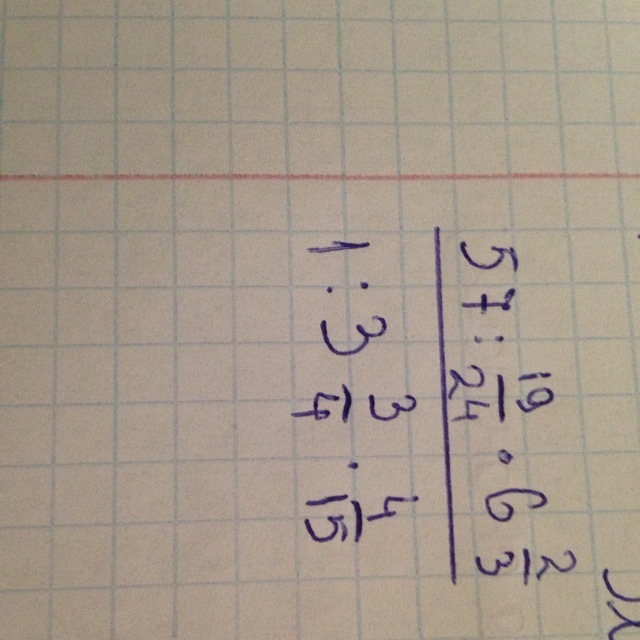 57 : 19/24 · 6 2/3
1 : 3 3/4 · 4/15